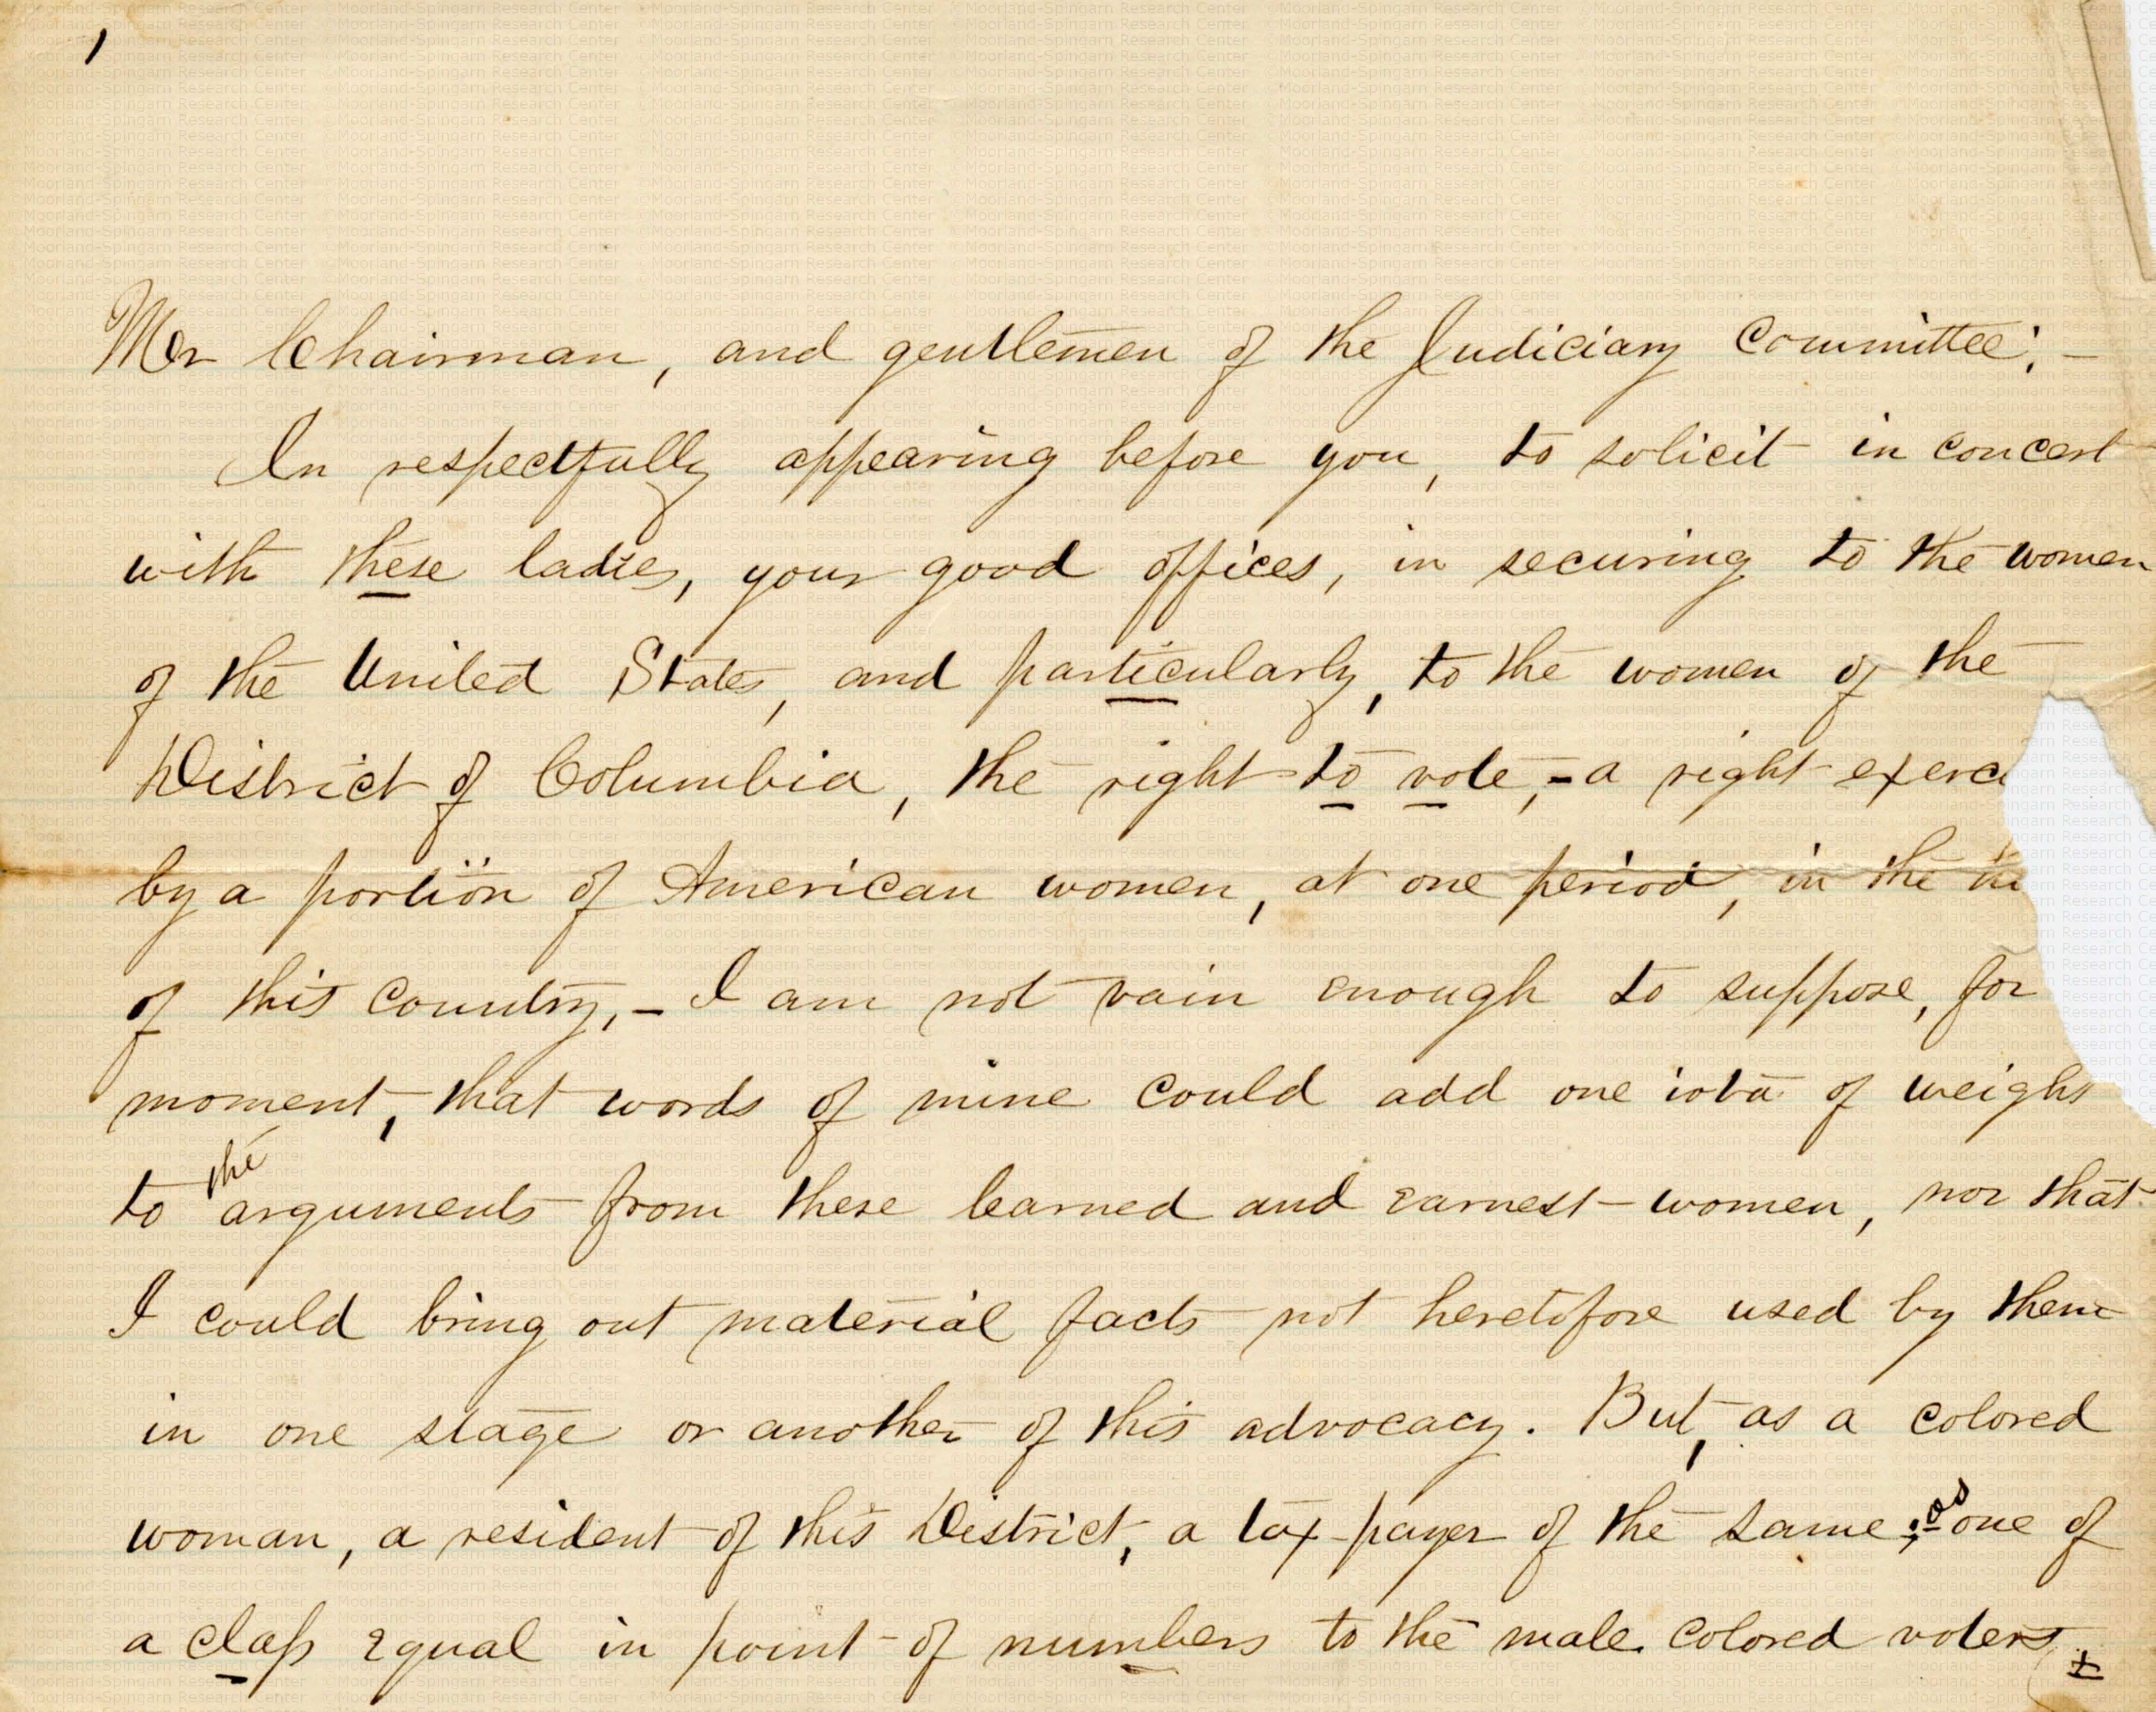 1
Mr Chairman, and gentlemen of the Judiciary Committee; —
In respectfully appearing before you, to solicit in concert
with these ladies, your good offices, in securing to the women
of the United States, and particularly, to the women of the
District of Columbia, the right to vote, - a right exerc
by a portion of American women, at one period, in the
of this country, - I am not vain enough to suppose, for
moment, that words of mine could add one iota of weight
the
to arguments from these learned and earnest women, nor that
I could bring out material facts not heretofore used by them
in one stage or another of this advocacy. But, as a colored
woman, a resident of this District, a tax-payer of the same; as one of
a class equal in point of numbers to the male colored voters
Moorland-Spingarn Research Center